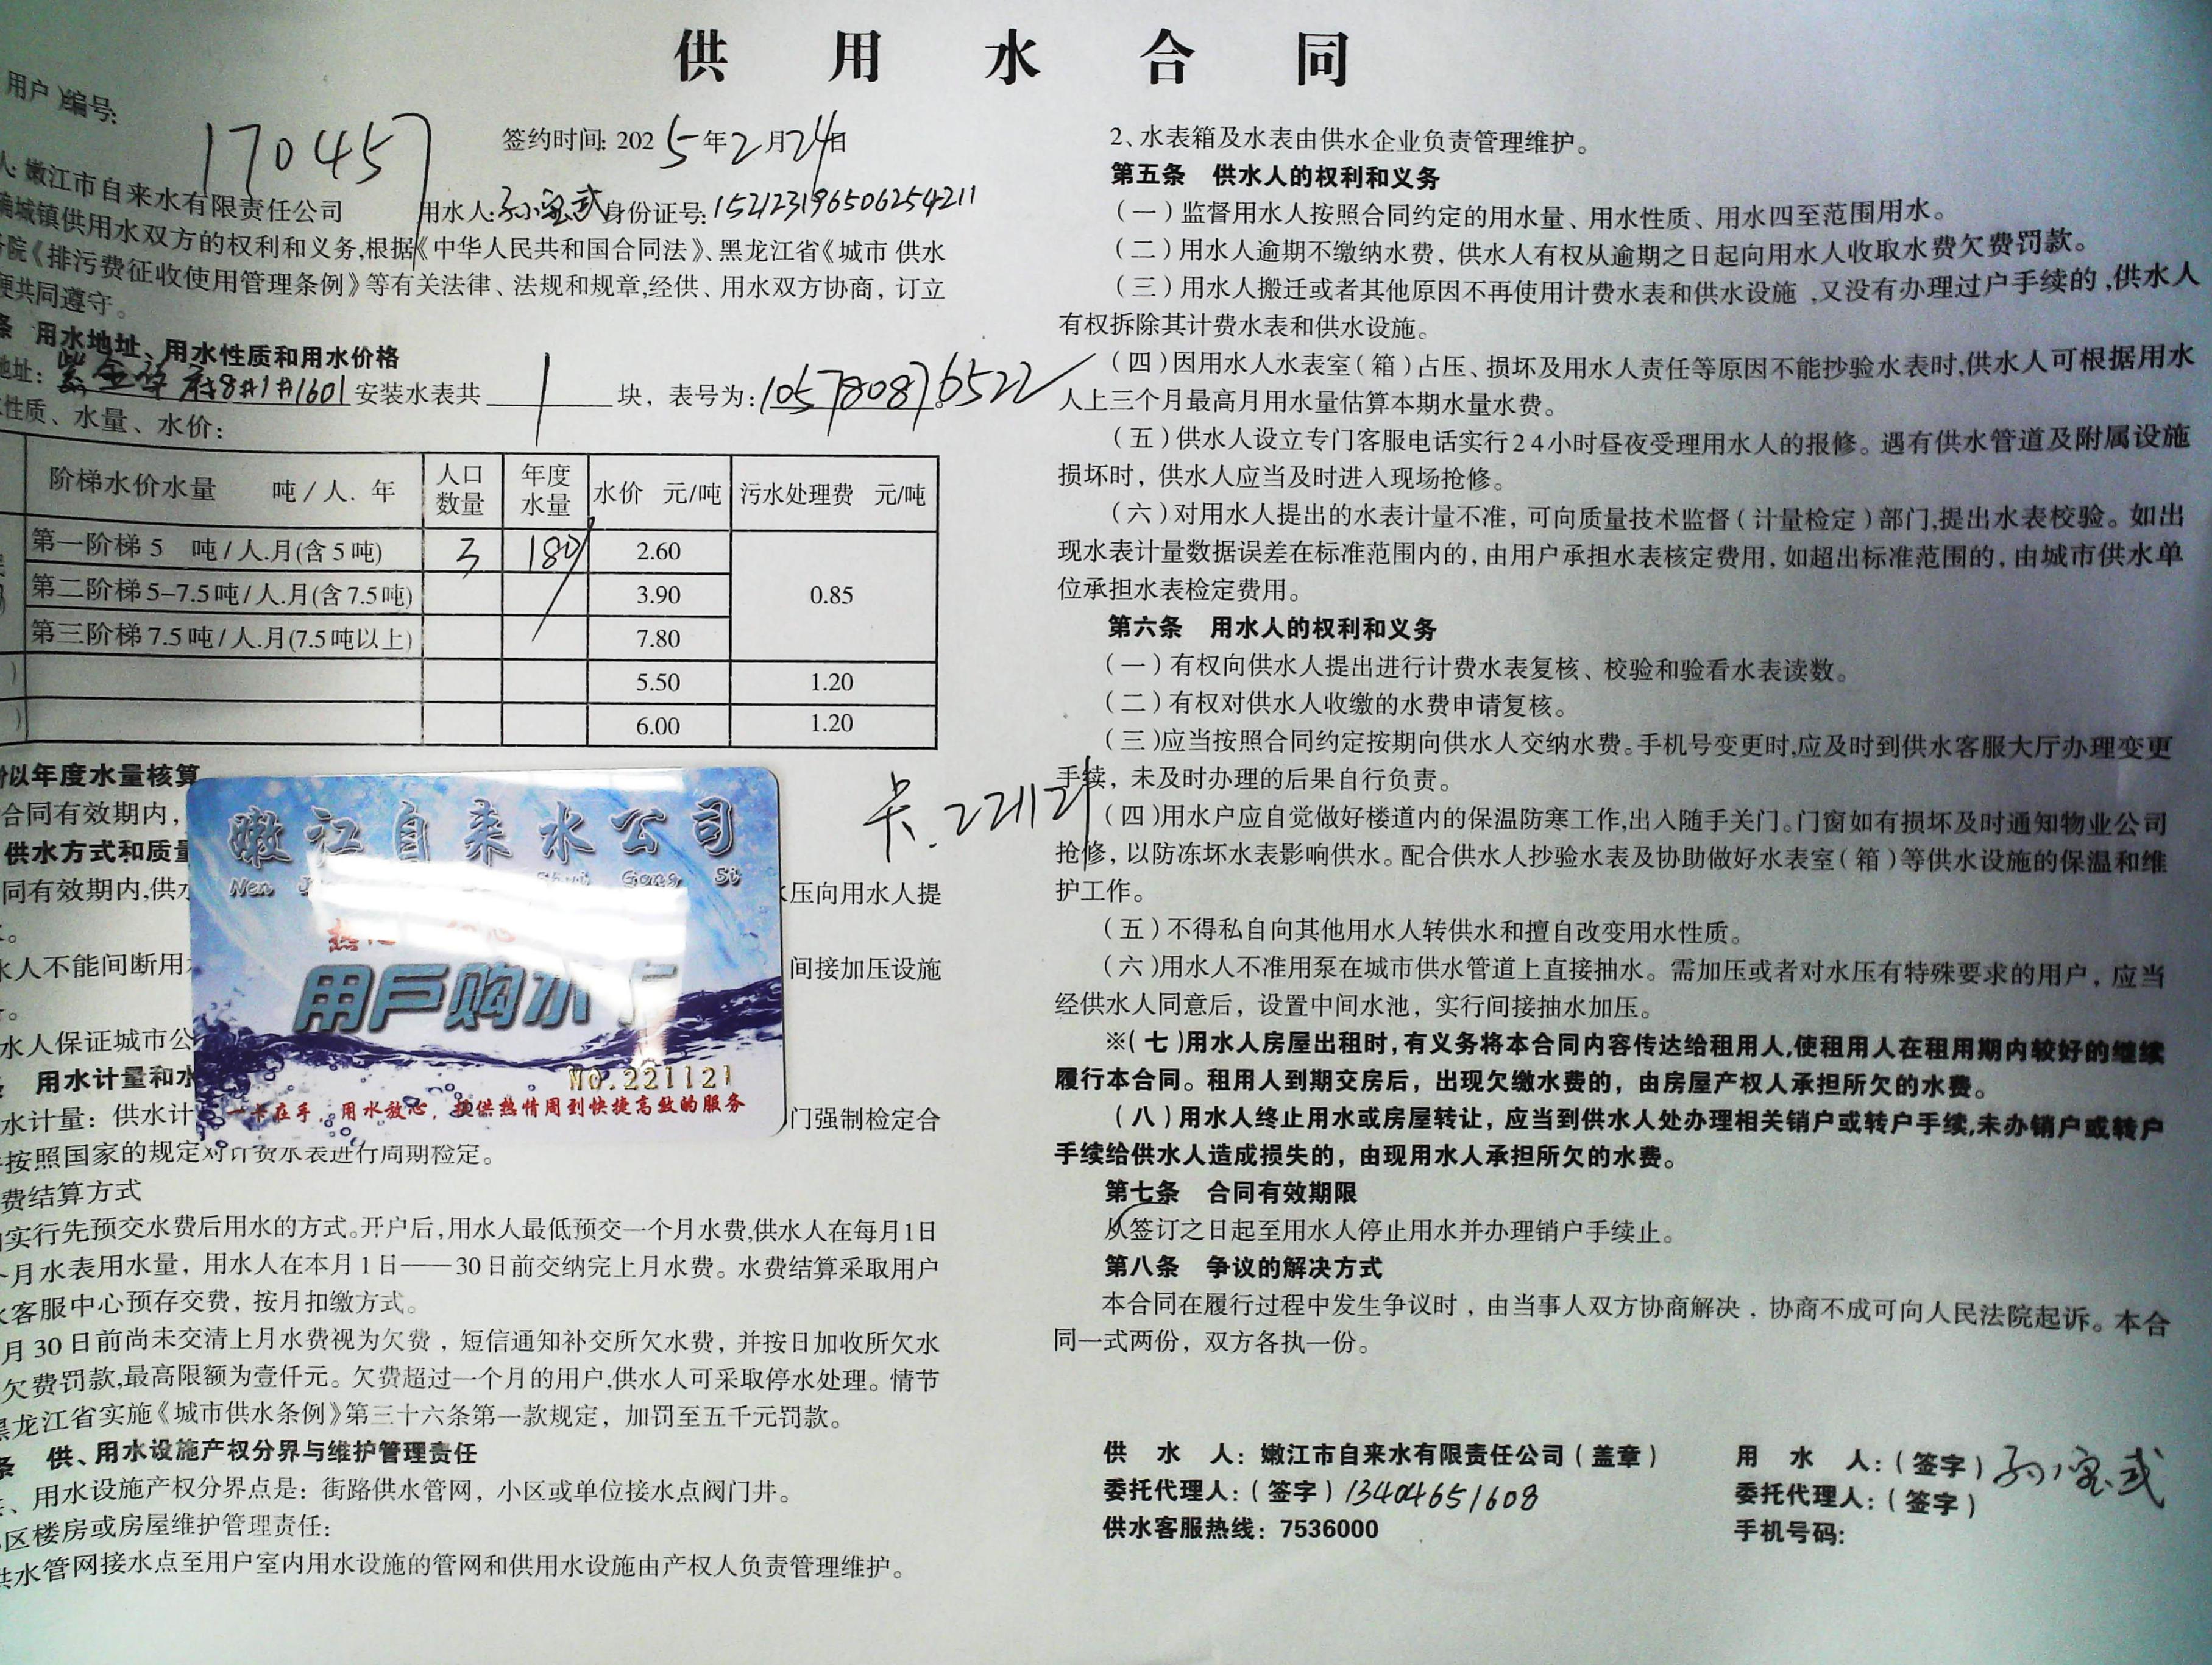 供 用 水 合 同
用户)编号:
170457
签约时间: 2025年2月24日
人: 嫩江市自来水有限责任公司 用水人: 孙宝武 身份证号: 152123196506254211
确城镇供用水双方的权利和义务,根据《中华人民共和国合同法》、黑龙江省《城市 供水
院《排污费征收使用管理条例》等有关法律、法规和规章,经供、用水双方协商，订立
便共同遵守。
条 用水地址、用水性质和用水价格
地址: 紫金 府8#1#1601 安装水表共 1 块，表号为: 105780876522
性质、水量、水价:
阶梯水价水量 吨/人. 年 人口数量 年度水量 水价 元/吨 污水处理费 元/吨
第一阶梯 5 吨/人.月(含5吨) 3 180 2.60 0.85
第二阶梯 5-7.5吨/人.月(含7.5吨) 3.90
第三阶梯 7.5吨/人.月(7.5吨以上) 7.80
5.50 1.20
6.00 1.20
以年度水量核算
合同有效期内，
供水方式和质量
同有效期内,供水
压向用水人提
水人不能间断用
间接加压设施
水人保证城市公
用水计量和水
水计量：供水计
门强制检定合
按照国家的规定对计费水表进行周期检定。
费结算方式
实行先预交水费后用水的方式。开户后,用水人最低预交一个月水费,供水人在每月1日
个月水表用水量，用水人在本月1日——30日前交纳完上月水费。水费结算采取用户
客服中心预存交费，按月扣缴方式。
月30日前尚未交清上月水费视为欠费，短信通知补交所欠水费，并按日加收所欠水
欠费罚款,最高限额为壹仟元。欠费超过一个月的用户,供水人可采取停水处理。情节
黑龙江省实施《城市供水条例》第三十六条第一款规定，加罚至五千元罚款。
条 供、用水设施产权分界与维护管理责任
、用水设施产权分界点是：街路供水管网，小区或单位接水点阀门井。
区楼房或房屋维护管理责任：
供水管网接水点至用户室内用水设施的管网和供用水设施由产权人负责管理维护。
嫩江自来水公司
Nen Shui Gong Si
用户购水
No.221121
一卡在手，用水放心，提供热情周到快捷高效的服务
卡. 221121
2、水表箱及水表由供水企业负责管理维护。
第五条 供水人的权利和义务
（一）监督用水人按照合同约定的用水量、用水性质、用水四至范围用水。
（二）用水人逾期不缴纳水费，供水人有权从逾期之日起向用水人收取水费欠费罚款。
（三）用水人搬迁或者其他原因不再使用计费水表和供水设施 ,又没有办理过户手续的 ,供水人
有权拆除其计费水表和供水设施。
（四）因用水人水表室（箱）占压、损坏及用水人责任等原因不能抄验水表时,供水人可根据用水
人上三个月最高月用水量估算本期水量水费。
（五）供水人设立专门客服电话实行24小时昼夜受理用水人的报修。遇有供水管道及附属设施
损坏时，供水人应当及时进入现场抢修。
（六）对用水人提出的水表计量不准，可向质量技术监督（计量检定）部门,提出水表校验。如出
现水表计量数据误差在标准范围内的，由用户承担水表核定费用，如超出标准范围的，由城市供水单
位承担水表检定费用。
第六条 用水人的权利和义务
（一）有权向供水人提出进行计费水表复核、校验和验看水表读数。
（二）有权对供水人收缴的水费申请复核。
（三)应当按照合同约定按期向供水人交纳水费。手机号变更时,应及时到供水客服大厅办理变更
手续，未及时办理的后果自行负责。
（四)用水户应自觉做好楼道内的保温防寒工作,出入随手关门。门窗如有损坏及时通知物业公司
抢修，以防冻坏水表影响供水。配合供水人抄验水表及协助做好水表室（箱）等供水设施的保温和维
护工作。
（五）不得私自向其他用水人转供水和擅自改变用水性质。
（六)用水人不准用泵在城市供水管道上直接抽水。需加压或者对水压有特殊要求的用户，应当
经供水人同意后，设置中间水池，实行间接抽水加压。
※(七)用水人房屋出租时，有义务将本合同内容传达给租用人,使租用人在租用期内较好的继续
履行本合同。租用人到期交房后，出现欠缴水费的，由房屋产权人承担所欠的水费。
（八）用水人终止用水或房屋转让，应当到供水人处办理相关销户或转户手续,未办销户或转户
手续给供水人造成损失的，由现用水人承担所欠的水费。
第七条 合同有效期限
从签订之日起至用水人停止用水并办理销户手续止。
第八条 争议的解决方式
本合同在履行过程中发生争议时，由当事人双方协商解决，协商不成可向人民法院起诉。本合
同一式两份，双方各执一份。
供 水 人：嫩江市自来水有限责任公司（盖章） 用 水 人:（签字）孙宝武
委托代理人：（签字）13404651608 委托代理人:（签字）
供水客服热线：7536000 手机号码: